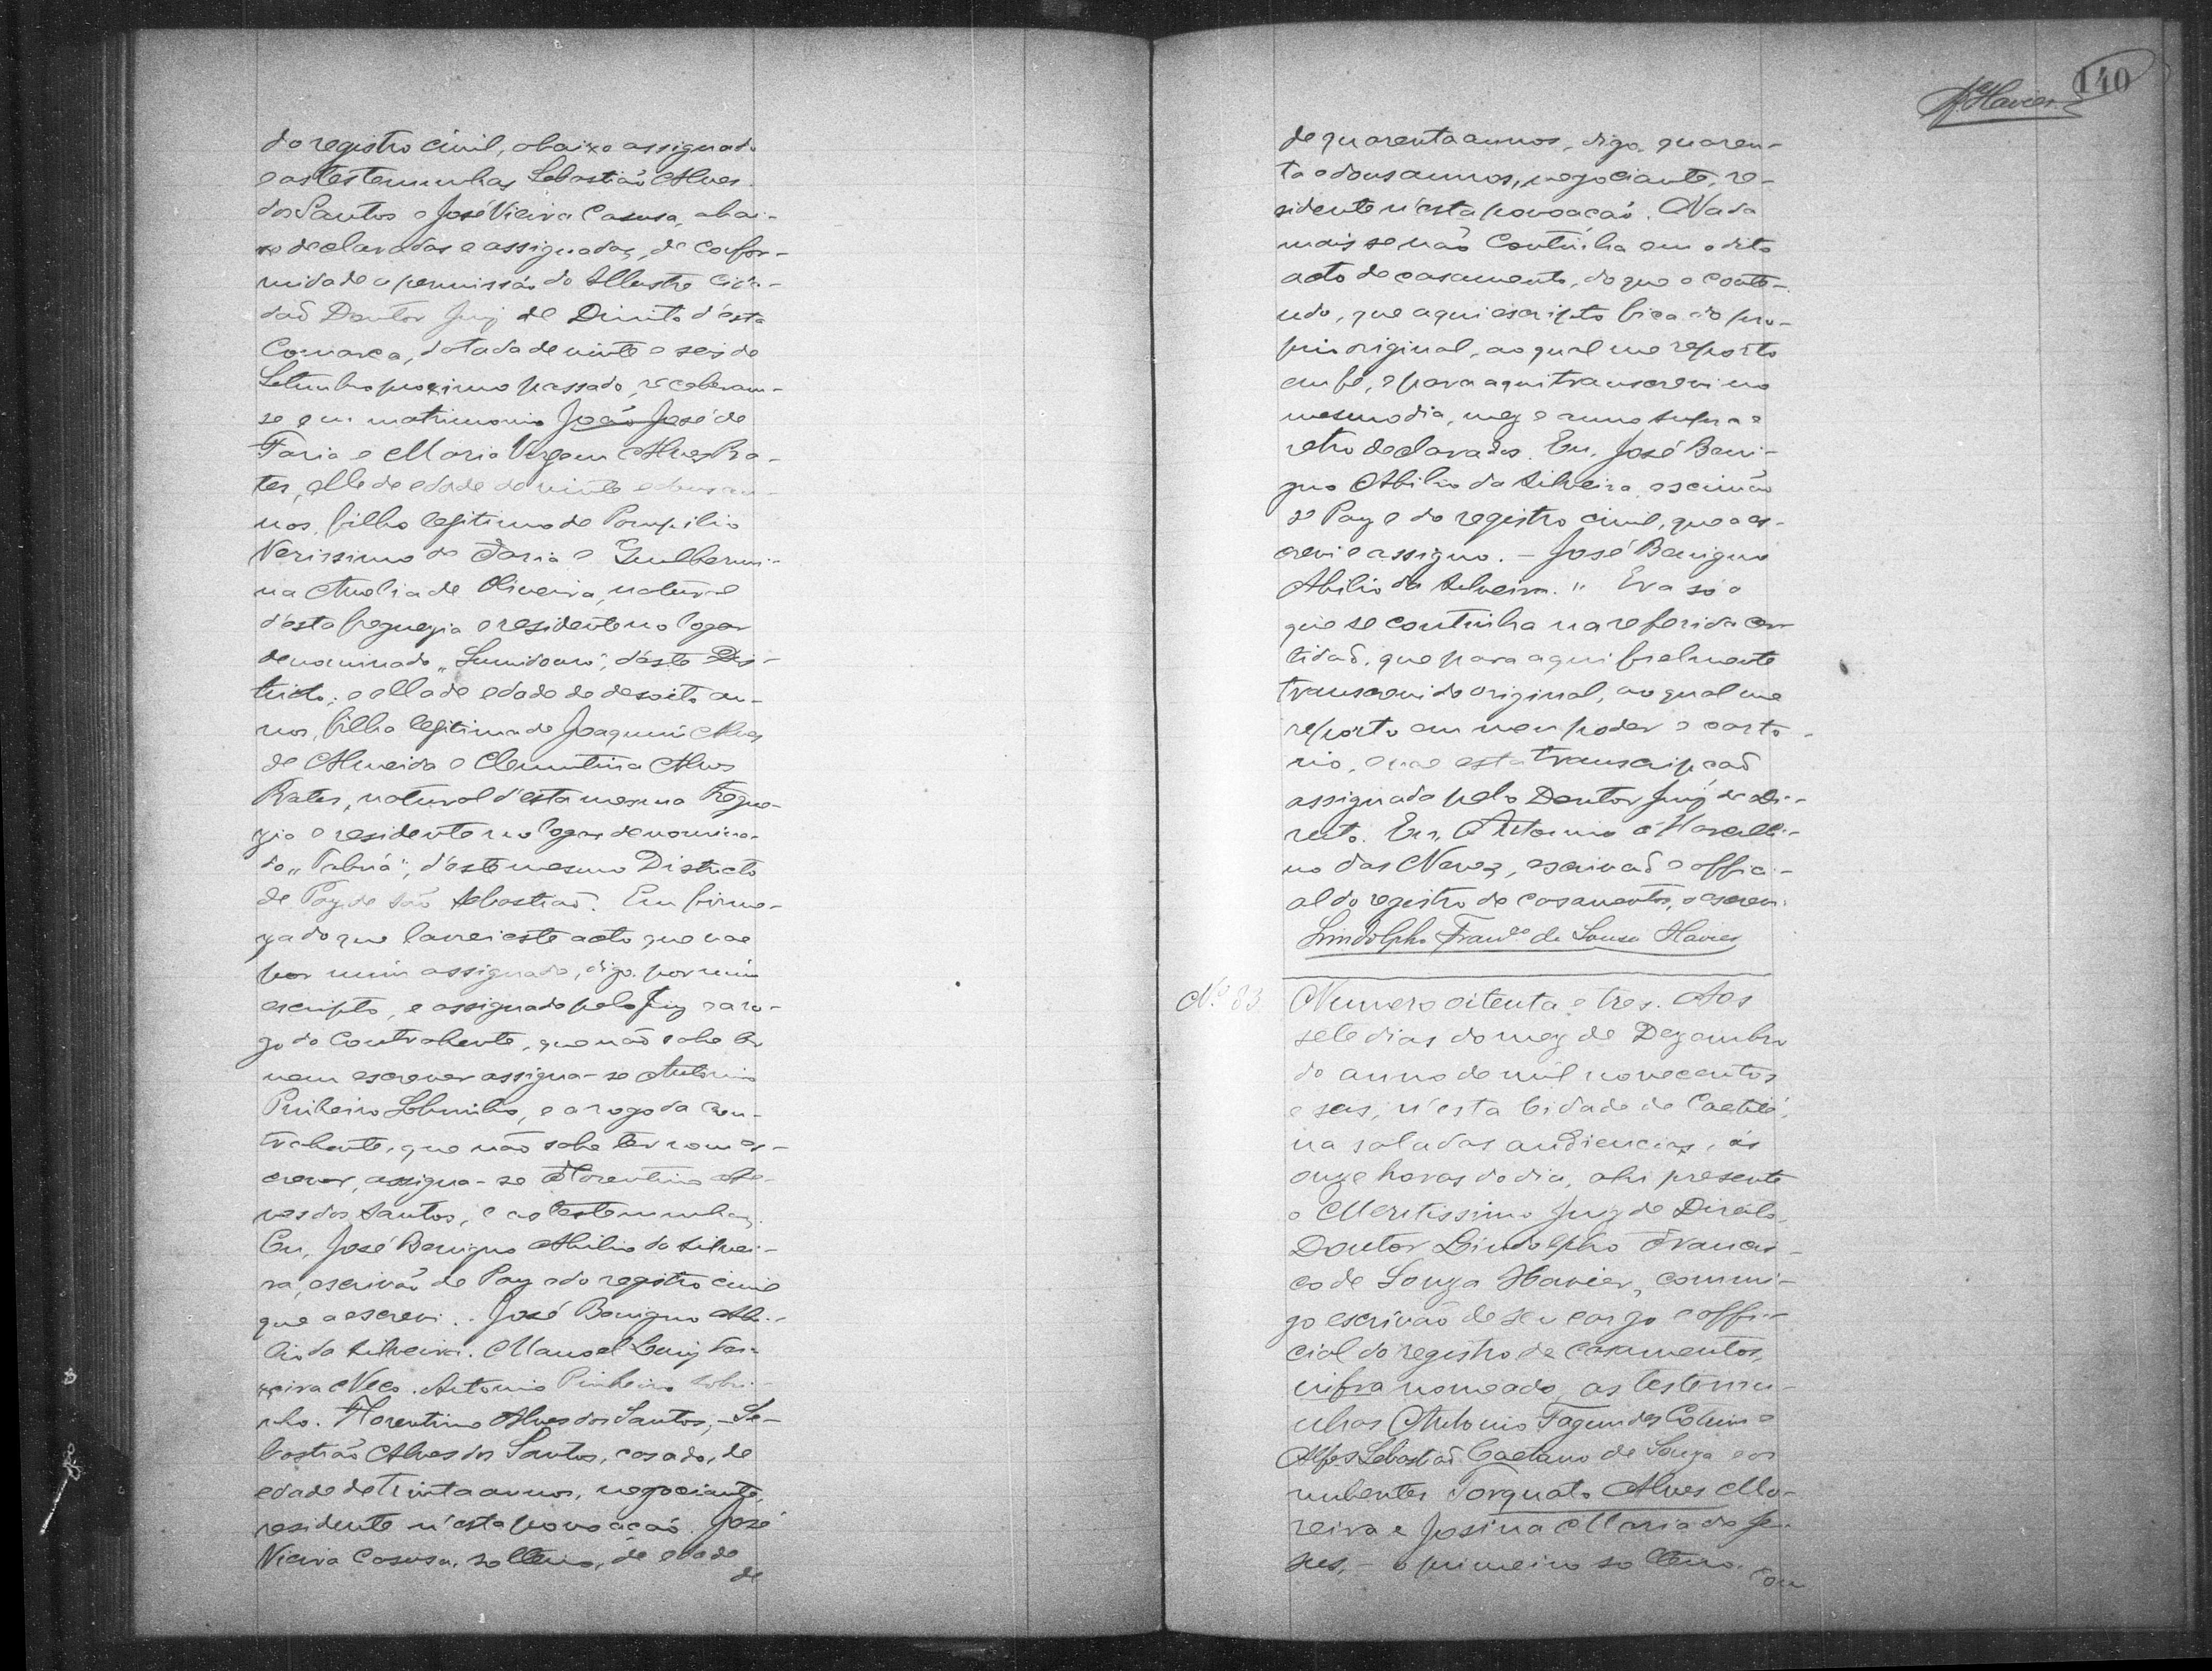 do registro civil, abaixo assignado
e as testemunhas Sebastião Alves
dos Santos e José Vieira Casusa, abai-
xo declaradas e assignadas, de confor-
midade a permissão do Illustre Cida-
daõ Doutor Juiz de Direito d'esta
Comarca, datada de vinte e seis de
Setembro proximo passado, receberam-
se em matrimonio João José de
Faria e Maria Virgem Alves Pra-
tes, elle de edade de vinte e dous an-
nos, filho legitimo de Pompilio
Verissimo de Faria e Guilhermi-
na Amelia de Oliveira, natural
d'esta freguezia e residente no logar
denominado „Sumidouro", d'este Dis-
tricto; e ella de edade de desoito an-
nos, filha legitima de Joaquim Alves
de Almeida e Clementina Alves
Prates, natural d'esta mesma Fregue-
zia e residente no logar denomina-
do „Tabuá", d'este mesmo Districto
de Paz de São Sebastiaõ. Em firme-
za do que lavrei este acto que vae
por mim assignado, digo, por mim
escripto, e assignado pelo Juiz e a ro-
go do Contrahente, que naõ sabe ler
nem escrever assigna-se Antonio
Pinheiro Sobrinho, e a rogo da Con-
trahente, que não sabe ler nem es-
crever, assigna-se Florentino Al-
ves dos Santos, e as testemunhas.
Eu, José Benigno Abilio da Silvei-
ra, escrivão de Paz e do registro civil
que a escrevi. José Benigno Abi-
lio da Silveira. Manoel Luiz
Neco. Antonio Pinheiro Sobri-
nho. Florentino Alves dos Santos, - Se-
bastião Alves dos Santos, casado, de
edade de trinta annos, negociante,
residente n'esta povoação. José
Vieira Casusa, solteiro, de edade
de
140
Xavier
de quarenta annos, digo, quaren-
ta e dous annos, negociante, re-
sidente n'esta povoação. Nada
mais se não continha em o dito
acto de casamento, do que o conte-
udo, que aqui escripto fica do pro-
prio original, ao qual me reporto
em fé, e para aqui transcrevi no
mesmo dia, mez e anno supra e
retro declarados. Eu, José Beni-
gno Abilio da Silveira, escrivão
de Paz e do registro civil, que o es-
crevi e assigno. - José Benigno
Abilio da Silveira." Era só o
que se continha na referida cer-
tidaõ, que para aqui fielmente
transcrevi do original, ao qual me
reporto em meu poder e carto-
rio, e vae esta transcripcaõ
assignada pelo Doutor Juiz de Di-
reito. Eu, Antonio Marcelli-
no das Neves, escrivaõ e offici-
al do registro de casamentos, o escrevi.
Lindolpho Franco de Souza Xavier
No. 83. Numero oitenta e tres. Aos
sete dias do mez de Dezembro
do anno de mil novecentos
e seis, n'esta Cidade de Caetité,
na sala das audiencias, ás
onze horas do dia, ahi presente
o Meritissimo Juiz de Direito,
Doutor Lindolpho Francis-
co de Souza Xavier, commi-
go escrivão de seu cargo e offi-
cial do registro de casamentos,
infra nomeado, as testemu-
nhas Antonio Fagundes Cotrim e
Alfes. Sebastiaõ Caetano de Souza e os
nubentes Torquato Alves Mo-
reira e Josina Maria de Je-
sus, - o primeiro solteiro.